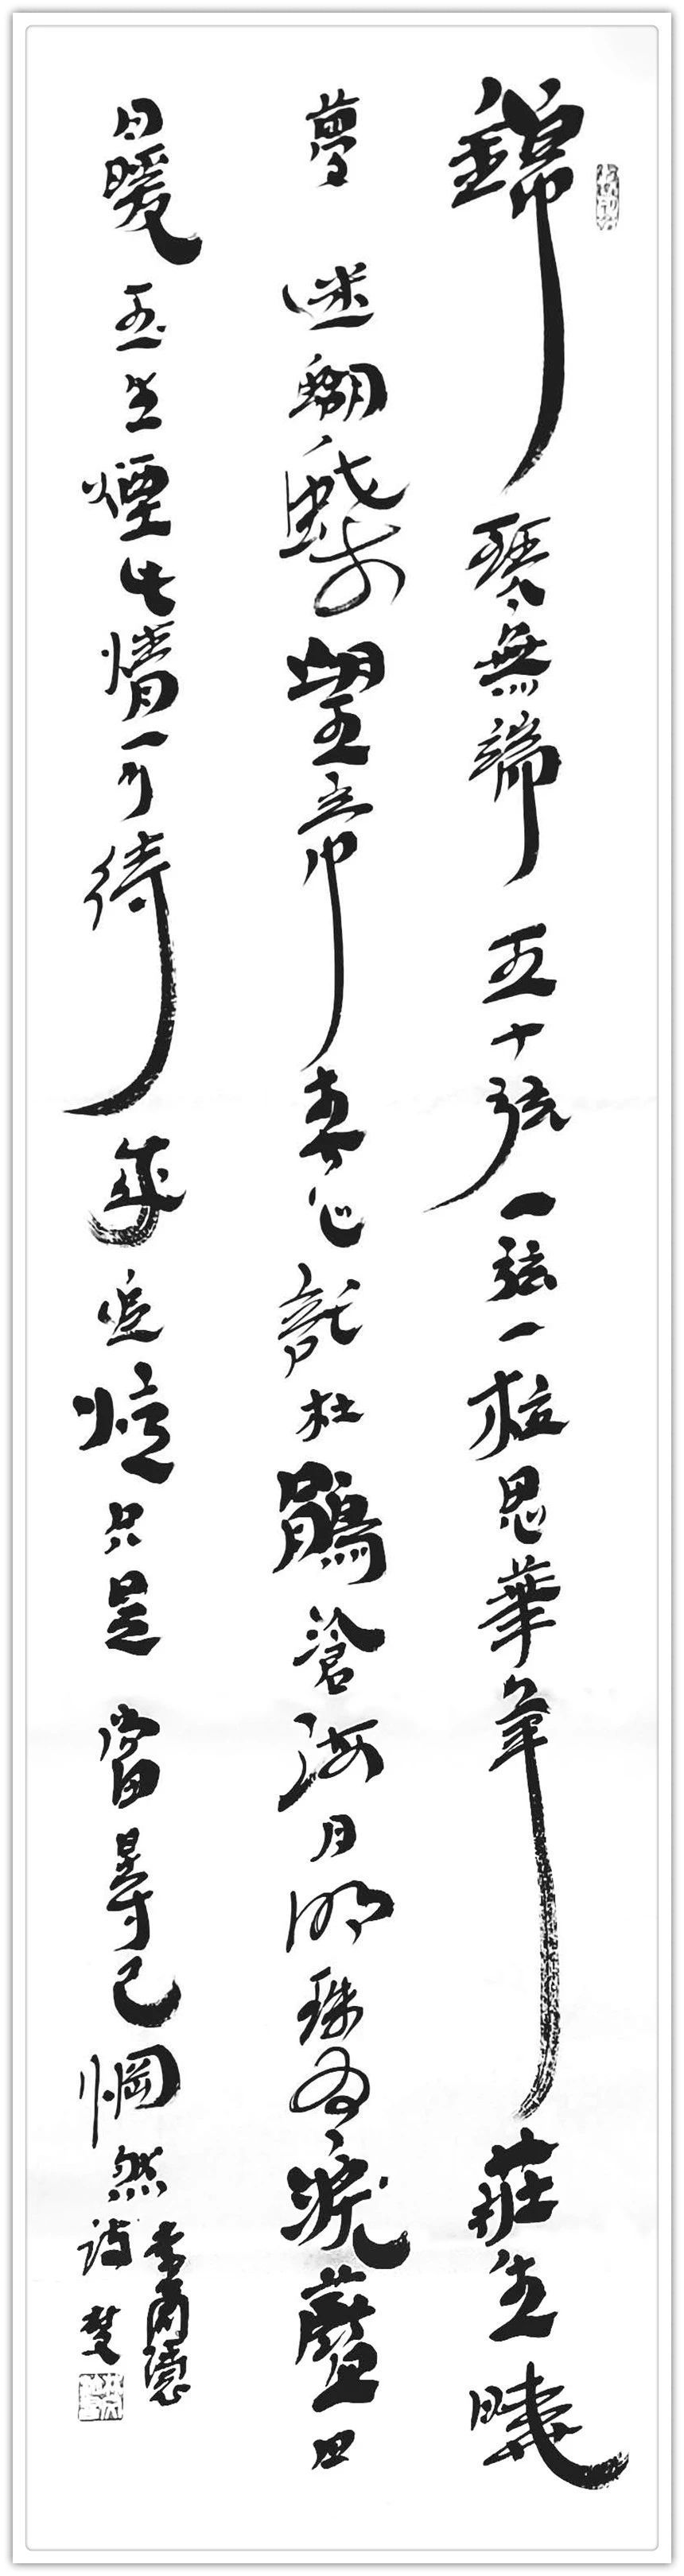 錦瑟無端五十弦一弦一柱思華年莊生曉
夢迷蝴蝶望帝春心託杜鵑滄海月明珠有淚藍田
日暖玉生煙此情可待成追憶只是當時已惘然
李商隱
詩